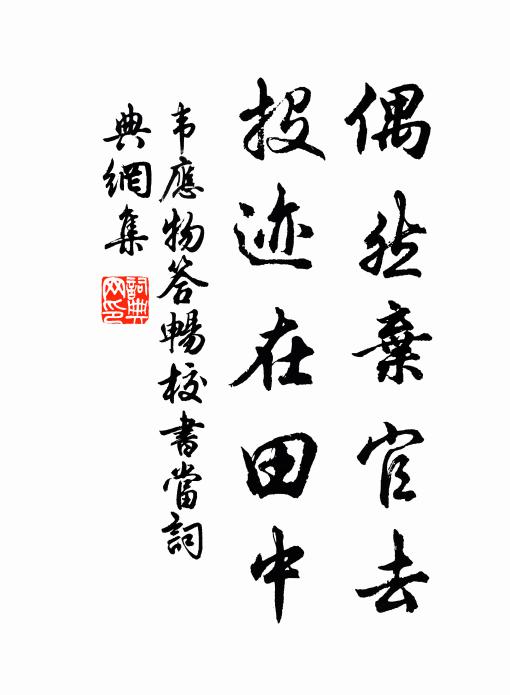 偶然棄官去
投迹在田中
韦應物答暢校書當詞
典網集
詞典网印